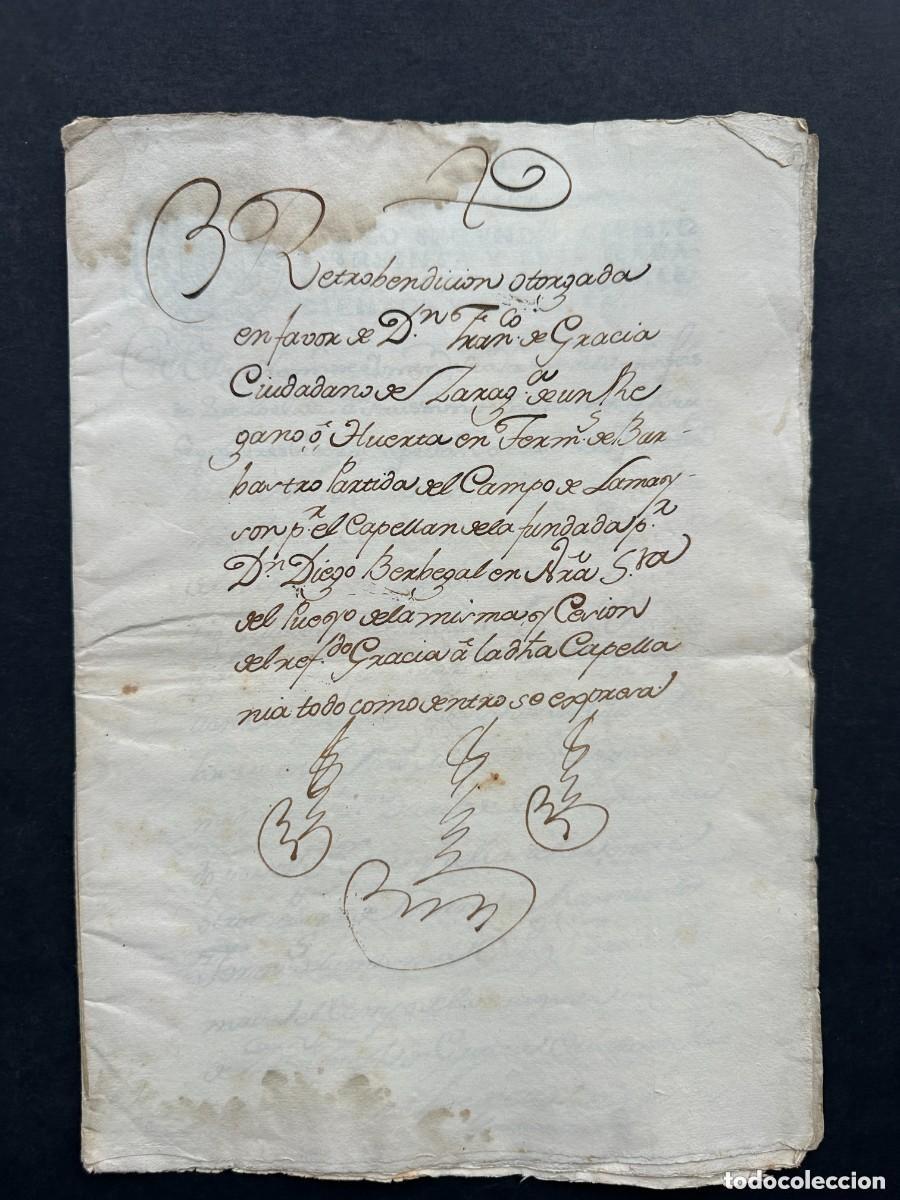 Retrobendicion otorgada
en favor de D.n Fran.co de Gracia
Ciudadano de Zarag.a de un Re
gano ó Huerta en Term.s de Bar-
bastro Partida del Campo de Lamay-
son p.r el Capellan de la fundada p.r
D.n Diego Berbegal en Nrã S.ra
del Pueyo de la misma y Cesion
del ref.do Gracia á la dha Capella
nia todo como dentro se expresa
todocoleccion